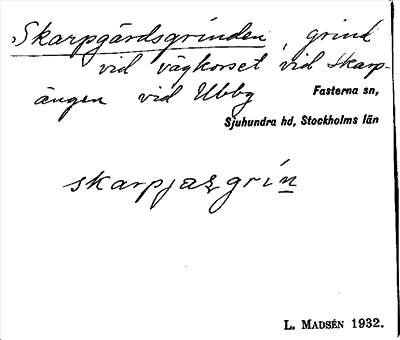 Skarpgärdsgrinden, grind
vid vägkorset vid Skarp-
ängen vid Ubby
Fasterna sn,
Sjuhundra hd, Stockholms län
L. MADSÉN 1932.